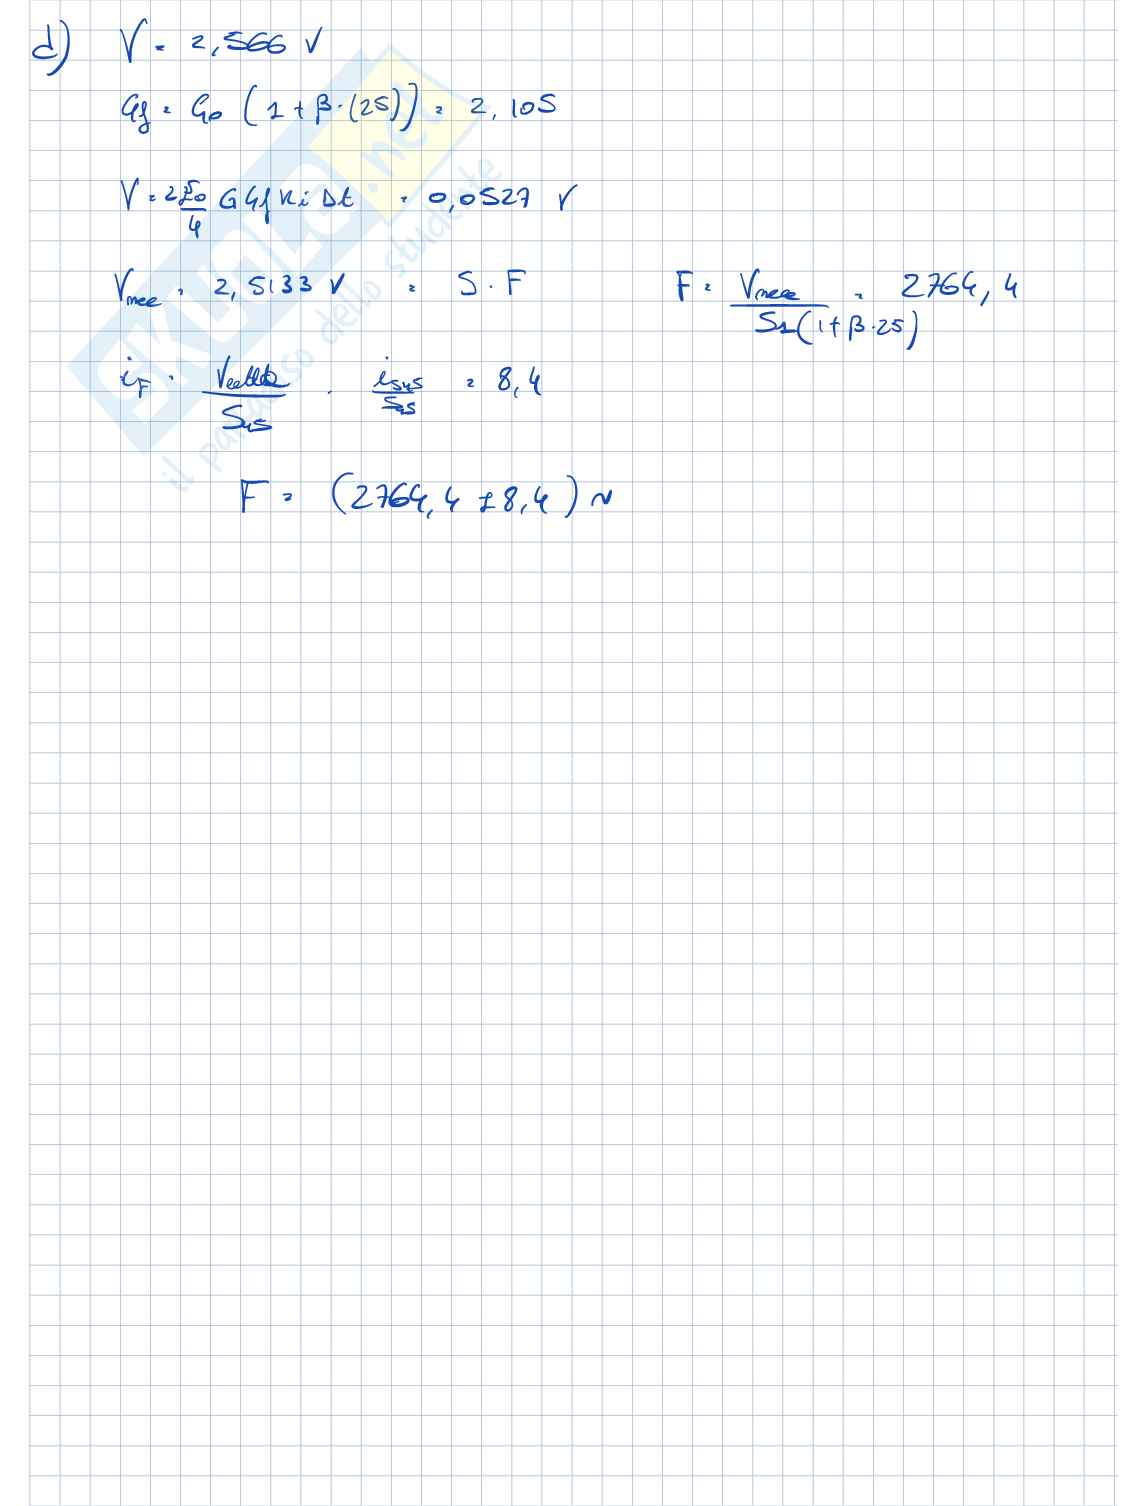 d) V = 2,566 V
Gf = G0 (1 + β·(25)) = 2,105
V = 2 E0/4 G Gf K i Δt = 0,0527 V
Vmecc = 2,5133 V = S · F F = Vmecc / S1(1 + β·25) = 2764,4
iF = / S45 · iS45 / S45 = 8,4
F = (2764,4 ± 8,4) N
SKUOLA.net
il paradiso dello studente